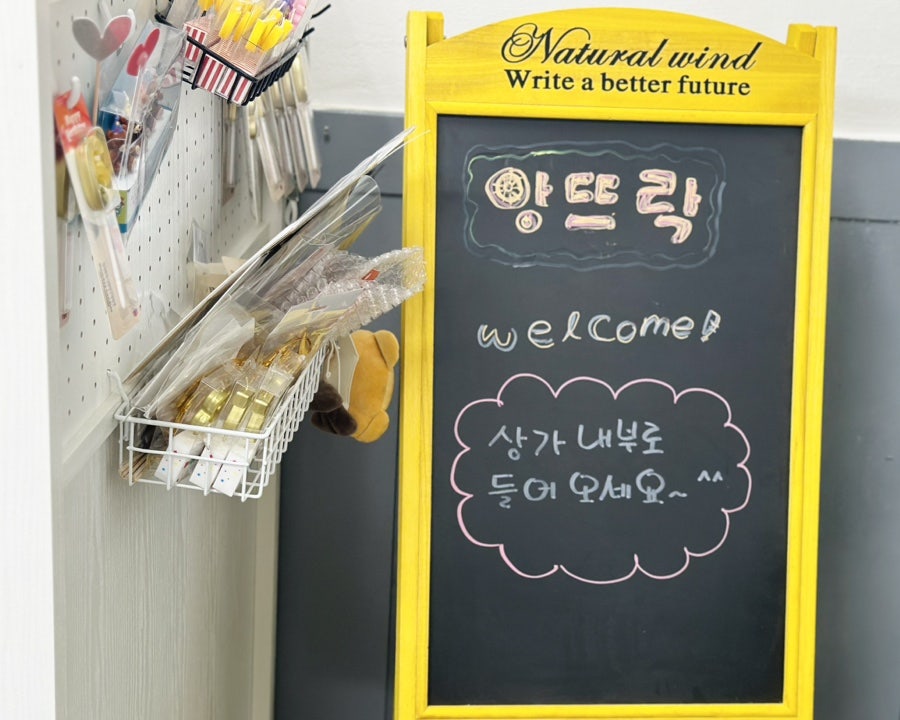 Natural wind
Write a better future
앙뜨락
welcome!
상가 내부로
들어 오세요~ ^^